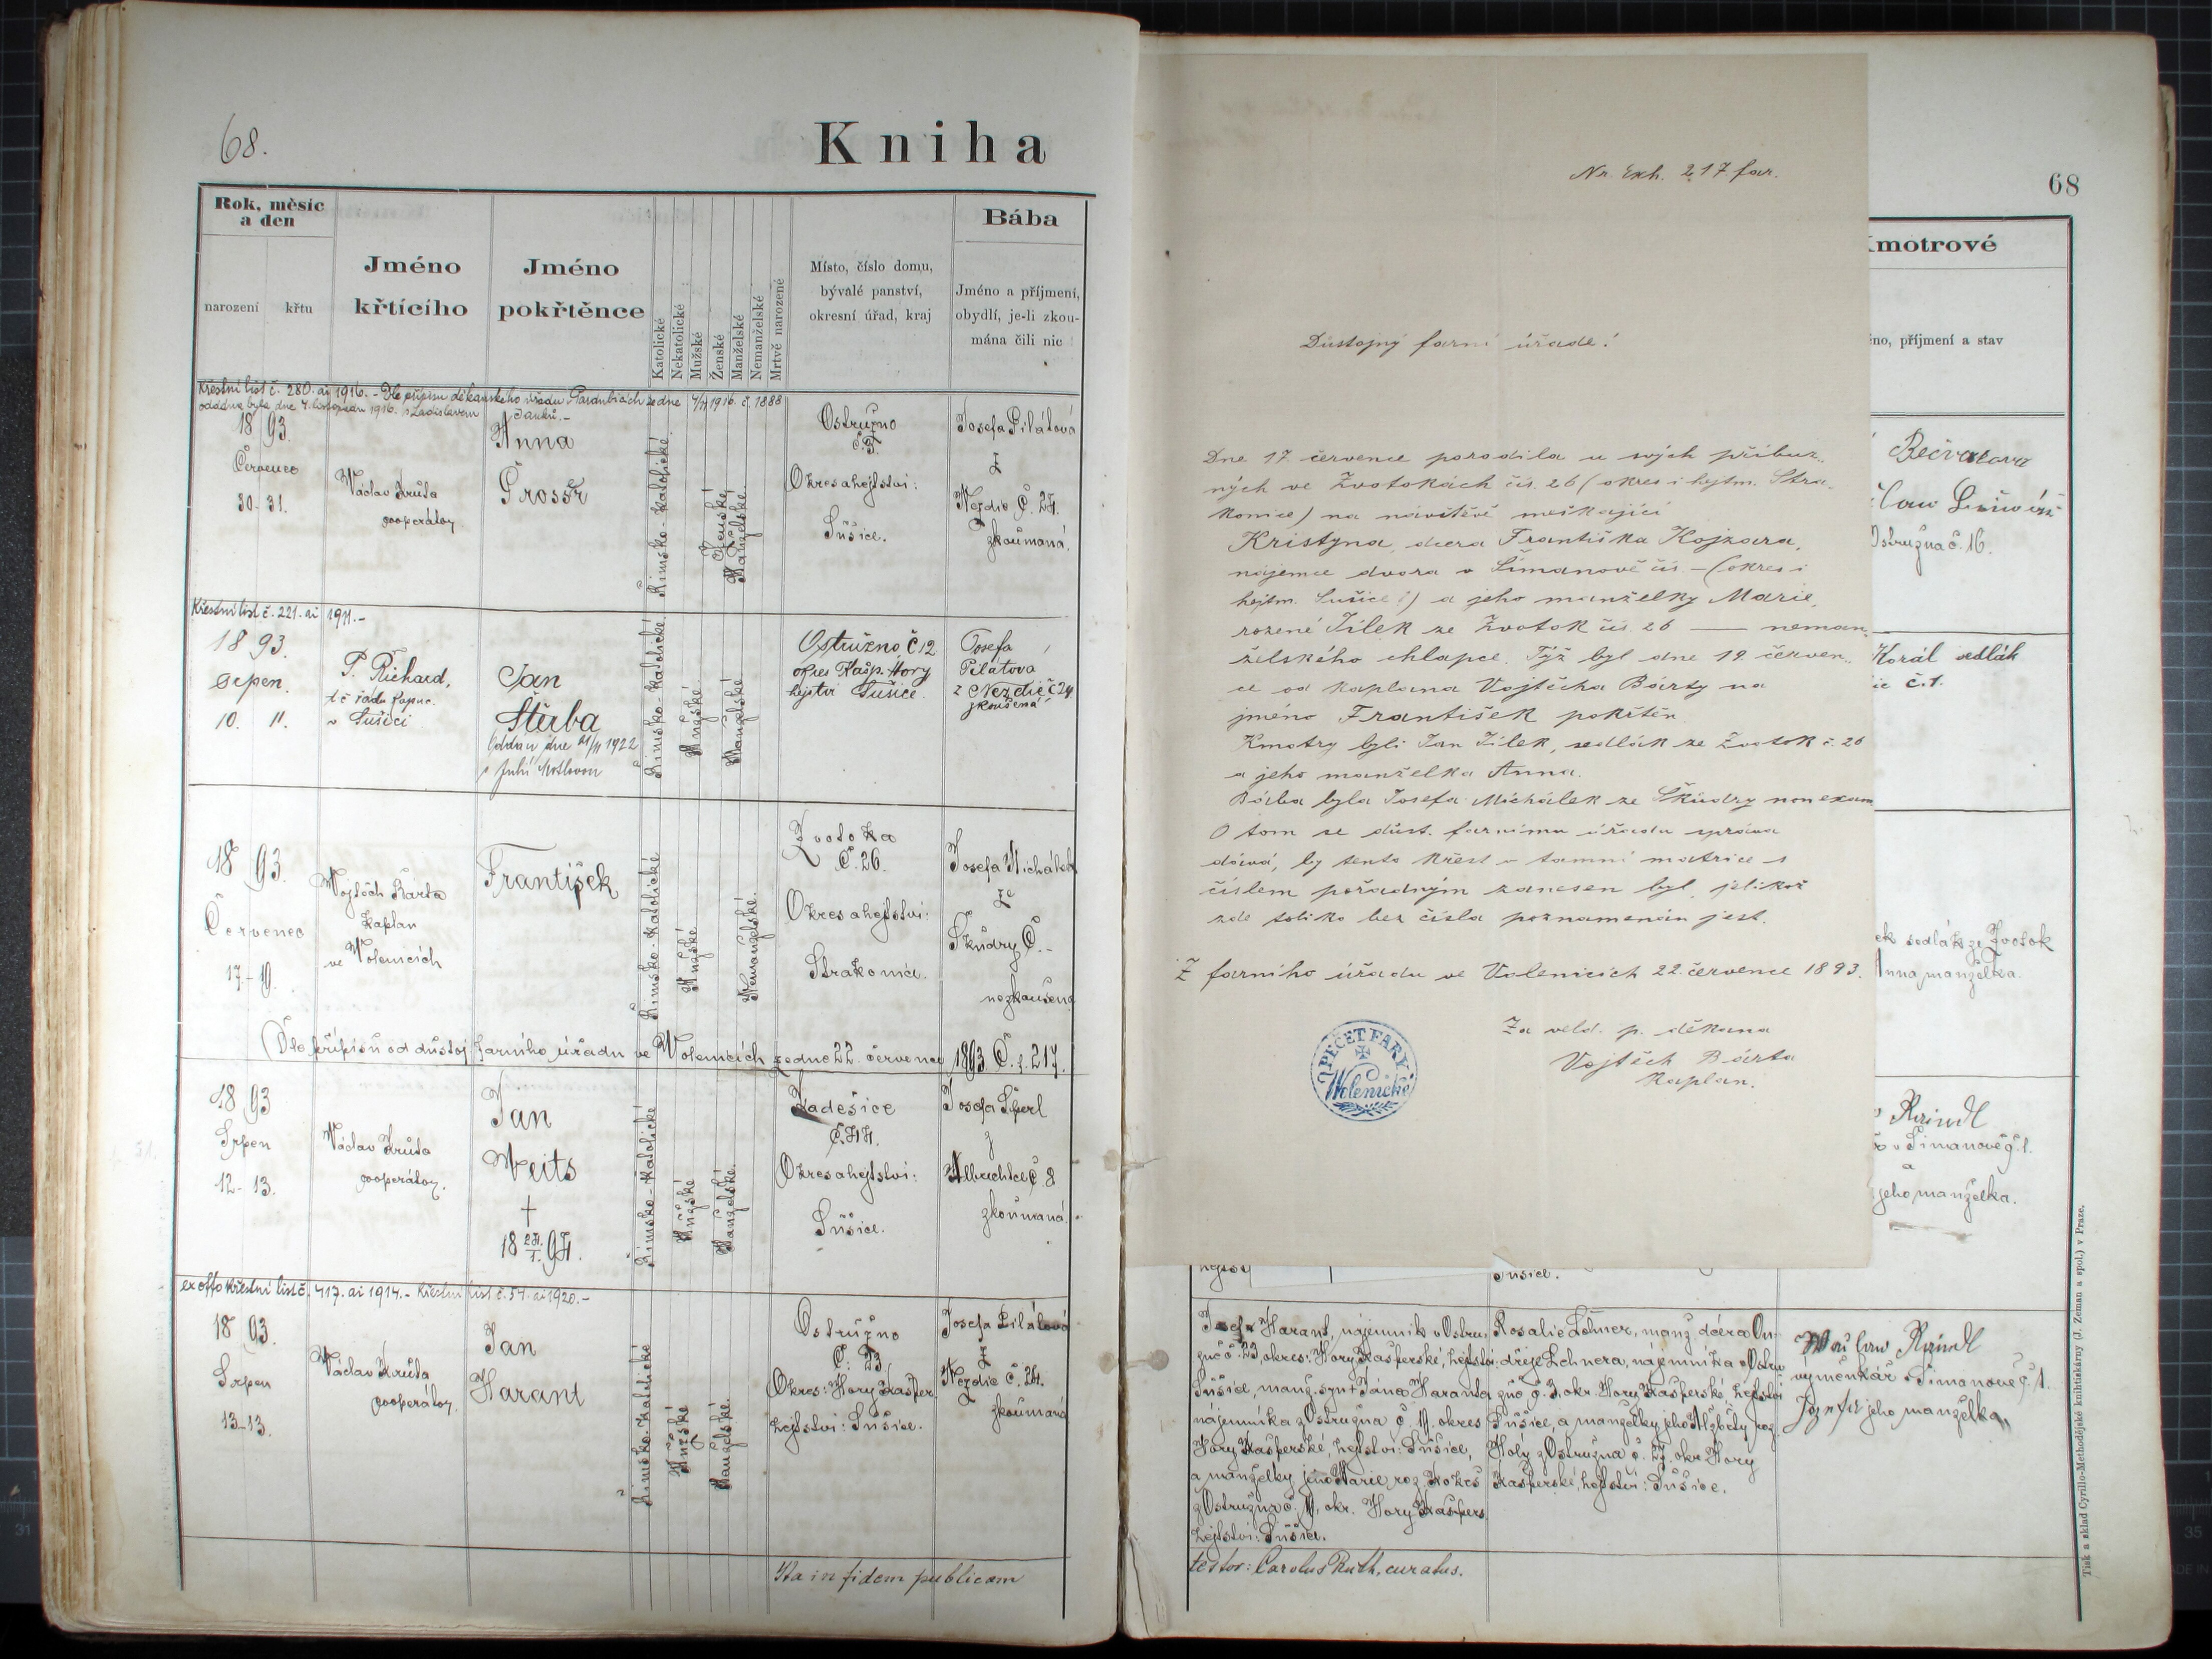 68.
Kniha
Rok, měsíc
a den
narození
křtu
Jméno
křtícího
Jméno
pokřtěnce
Katolické
Nekatolické
Mužské
Ženské
Manželské
Nemanželské
Mrtvě narozené
Místo, číslo domu,
bývalé panství,
okresní úřad, kraj
Bába
Jméno a příjmení,
obydlí, je-li zkou-
mána čili nic
Křestní list č. 280. ai 1916. - Dle přípisu děkanského úřadu v Pardubicích ze dne 4/11 1916. č. 1888
oddána byla dne 4. listopadu 1916. s Ladislavem
18 93.
Červenec
30-31.
Václav Kruta
cooperátor
Anna
Prossr
Římsko-katolické.
Ženské
Manželské.
Ostružno
Č. 7.
Okres a hejtství:
Sušice.
Josefa Pilátová
z
Nezdic Č. 24.
zkoumaná.
Křestní list č. 221. ai 1911.-
18 93.
Srpen.
10. 11.
P. Richard,
t č řádu kapuc.
v Sušici
Jan
Štěrba
Oddán dne 21/11 1922
Římsko katolické.
Mužské.
Manželské
Ostružno č 12
okres Kašp. Hory
hejtství Sušice.
Josefa
Pilátova
z Nezdic č 24
zkoušená
18 93.
Červenec
17-19.
Vojtěch Bárta
kaplan
ve Volenicích
František
Římsko-katolické
Mužské
Nemanželské.
Zvotoka
Č. 26.
Okres a hejtství:
Strakonice.
Josefa Michálek
ze
Škudry Č. -
nezkoušená
(Dle přípisu od důstoj. farního úřadu ve Volenicích ze dne 22. července 1893 Č. j. 217.
18 93
Srpen
12-13.
Václav Kruta
cooperátor.
Jan
Weits
†
18 24/1. 94.
Římsko-katolické
Mužské
Manželské.
Kadešice
Č. 44.
Okres a hejtství:
Sušice.
Josefa Šperl
z
Albrechtec č. 8
zkoumaná.
ex offo křestní list č. 417. ai 1914. - Křestní list č. 54. ai 1920.-
18 93.
Srpen
13-13.
Václav Kruta
cooperátor.
Jan
Harant
Římsko-katolické
Mužské
Manželské.
Ostružno
Č. 23
Okres: Hory Kašper.
hejtství: Sušice.
Josefa Pilátová
z
Nezdic č. 24.
zkoumaná
Ita in fidem publicam
Nr. Exh. 217 far.
Důstojný farní úřade!
Dne 17 července porodila u svých příbuz-
ných ve Zvotokách čís. 26 (okres i hejtm. Stra-
konice) na návštěvě meškající
Kristyna, dcera Františka Kojzara,
nájemce dvora v Šimanově čís. - (okres i
hejtm. Sušice?) a jeho manželky Marie,
rozené Jílek ze Zvotok čís. 26 — neman-
želského chlapce. Týž byl dne 19. červen-
ce od kaplana Vojtěcha Bárty na
jméno František pokřtěn.
Kmotry byli Jan Jílek, sedlák ze Zvotok č. 26
a jeho manželka Anna.
Bába byla Josefa Michálek ze Škudry non exam
O tom se důst. farnímu úřadu zpráva
dává, by tento křest v tamní matrice s
číslem pořadným zanesen byl, jelikož
zde toliko bez čísla poznamenán jest.
Z farního úřadu ve Volenicích 22. července 1893.
Za veld. p. děkana
Vojtěch Bárta
kaplan.
PEČEŤ FARY
Wolenické
68
Kmotrové
éno, příjmení a stav
Ostružna č. 16.
Korál sedlák
ic č. 1.
ek sedlák ze Zvotok
Anna manželka.
Raindl
v Šimanově č. 1.
a
jeho manželka.
hejtst
Sušice.
Josef Harant, nájemník v Ostru-
žně č. 23, okres: Hory Kašperské, hejtství:
Sušice, manž. syn † Jána Haranta
nájemníka z Ostružna č. 11. okres
Hory Kašperské, hejtství: Sušice,
a manželky jeho Marie roz. Kokeš
z Ostružna č. 11, okr. Hory Kašpers.
hejtství: Sušice.
Rosalie Lehner, manž. dcera On-
dřeje Lehnera, nájemníka v Ostru-
žně č. 3, okr. Hory Kašperské, hejtství
Sušice, a manželky jeho Alžběty roz.
Holý z Ostružna č. 27, okr. Hory
Kašperské, hejtství: Sušice.
Václav Raindl
výmenkář v Šimanově č. 1.
Josefa jeho manželka
testor: Carolus Ruth, curatus.
Tisk a sklad Cyrillo-Methodějské knihtiskárny (J. Zeman a spol.) v Praze.